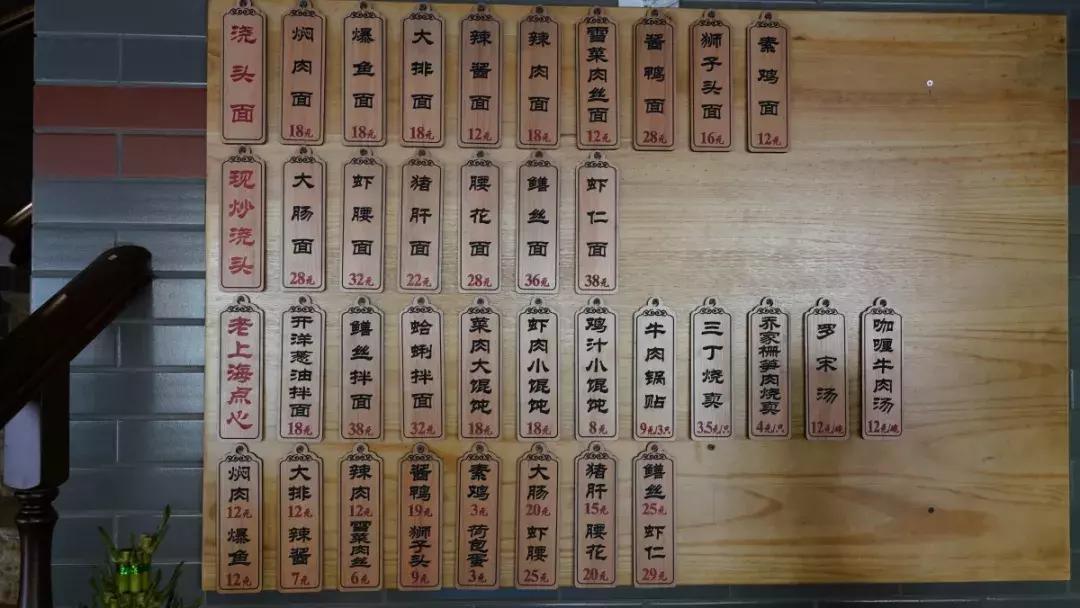 浇头面
焖肉面 18元
爆鱼面 18元
大排面 18元
辣酱面 12元
辣肉面 18元
雪菜肉丝面 12元
酱鸭面 28元
狮子头面 16元
素鸡面 12元
现炒浇头
大肠面 28元
虾腰面 32元
猪肝面 22元
腰花面 28元
鳝丝面 36元
虾仁面 38元
老上海点心
开洋葱油拌面 18元
鳝丝拌面 38元
蛤蜊拌面 32元
菜肉大馄饨 18元
虾肉小馄饨 18元
鸡汁小馄饨 8元
牛肉锅贴 9元/3只
三丁烧卖 3.5元/只
乔家栅笋肉烧卖 4元/只
罗宋汤 12元/碗
咖喱牛肉汤 12元/碗
焖肉 12元
爆鱼 12元
大排 12元
辣酱 7元
辣肉 12元
雪菜肉丝 6元
酱鸭 19元
狮子头 9元
素鸡 3元
荷包蛋 3元
大肠 20元
虾腰 25元
猪肝 15元
腰花 20元
鳝丝 25元
虾仁 29元